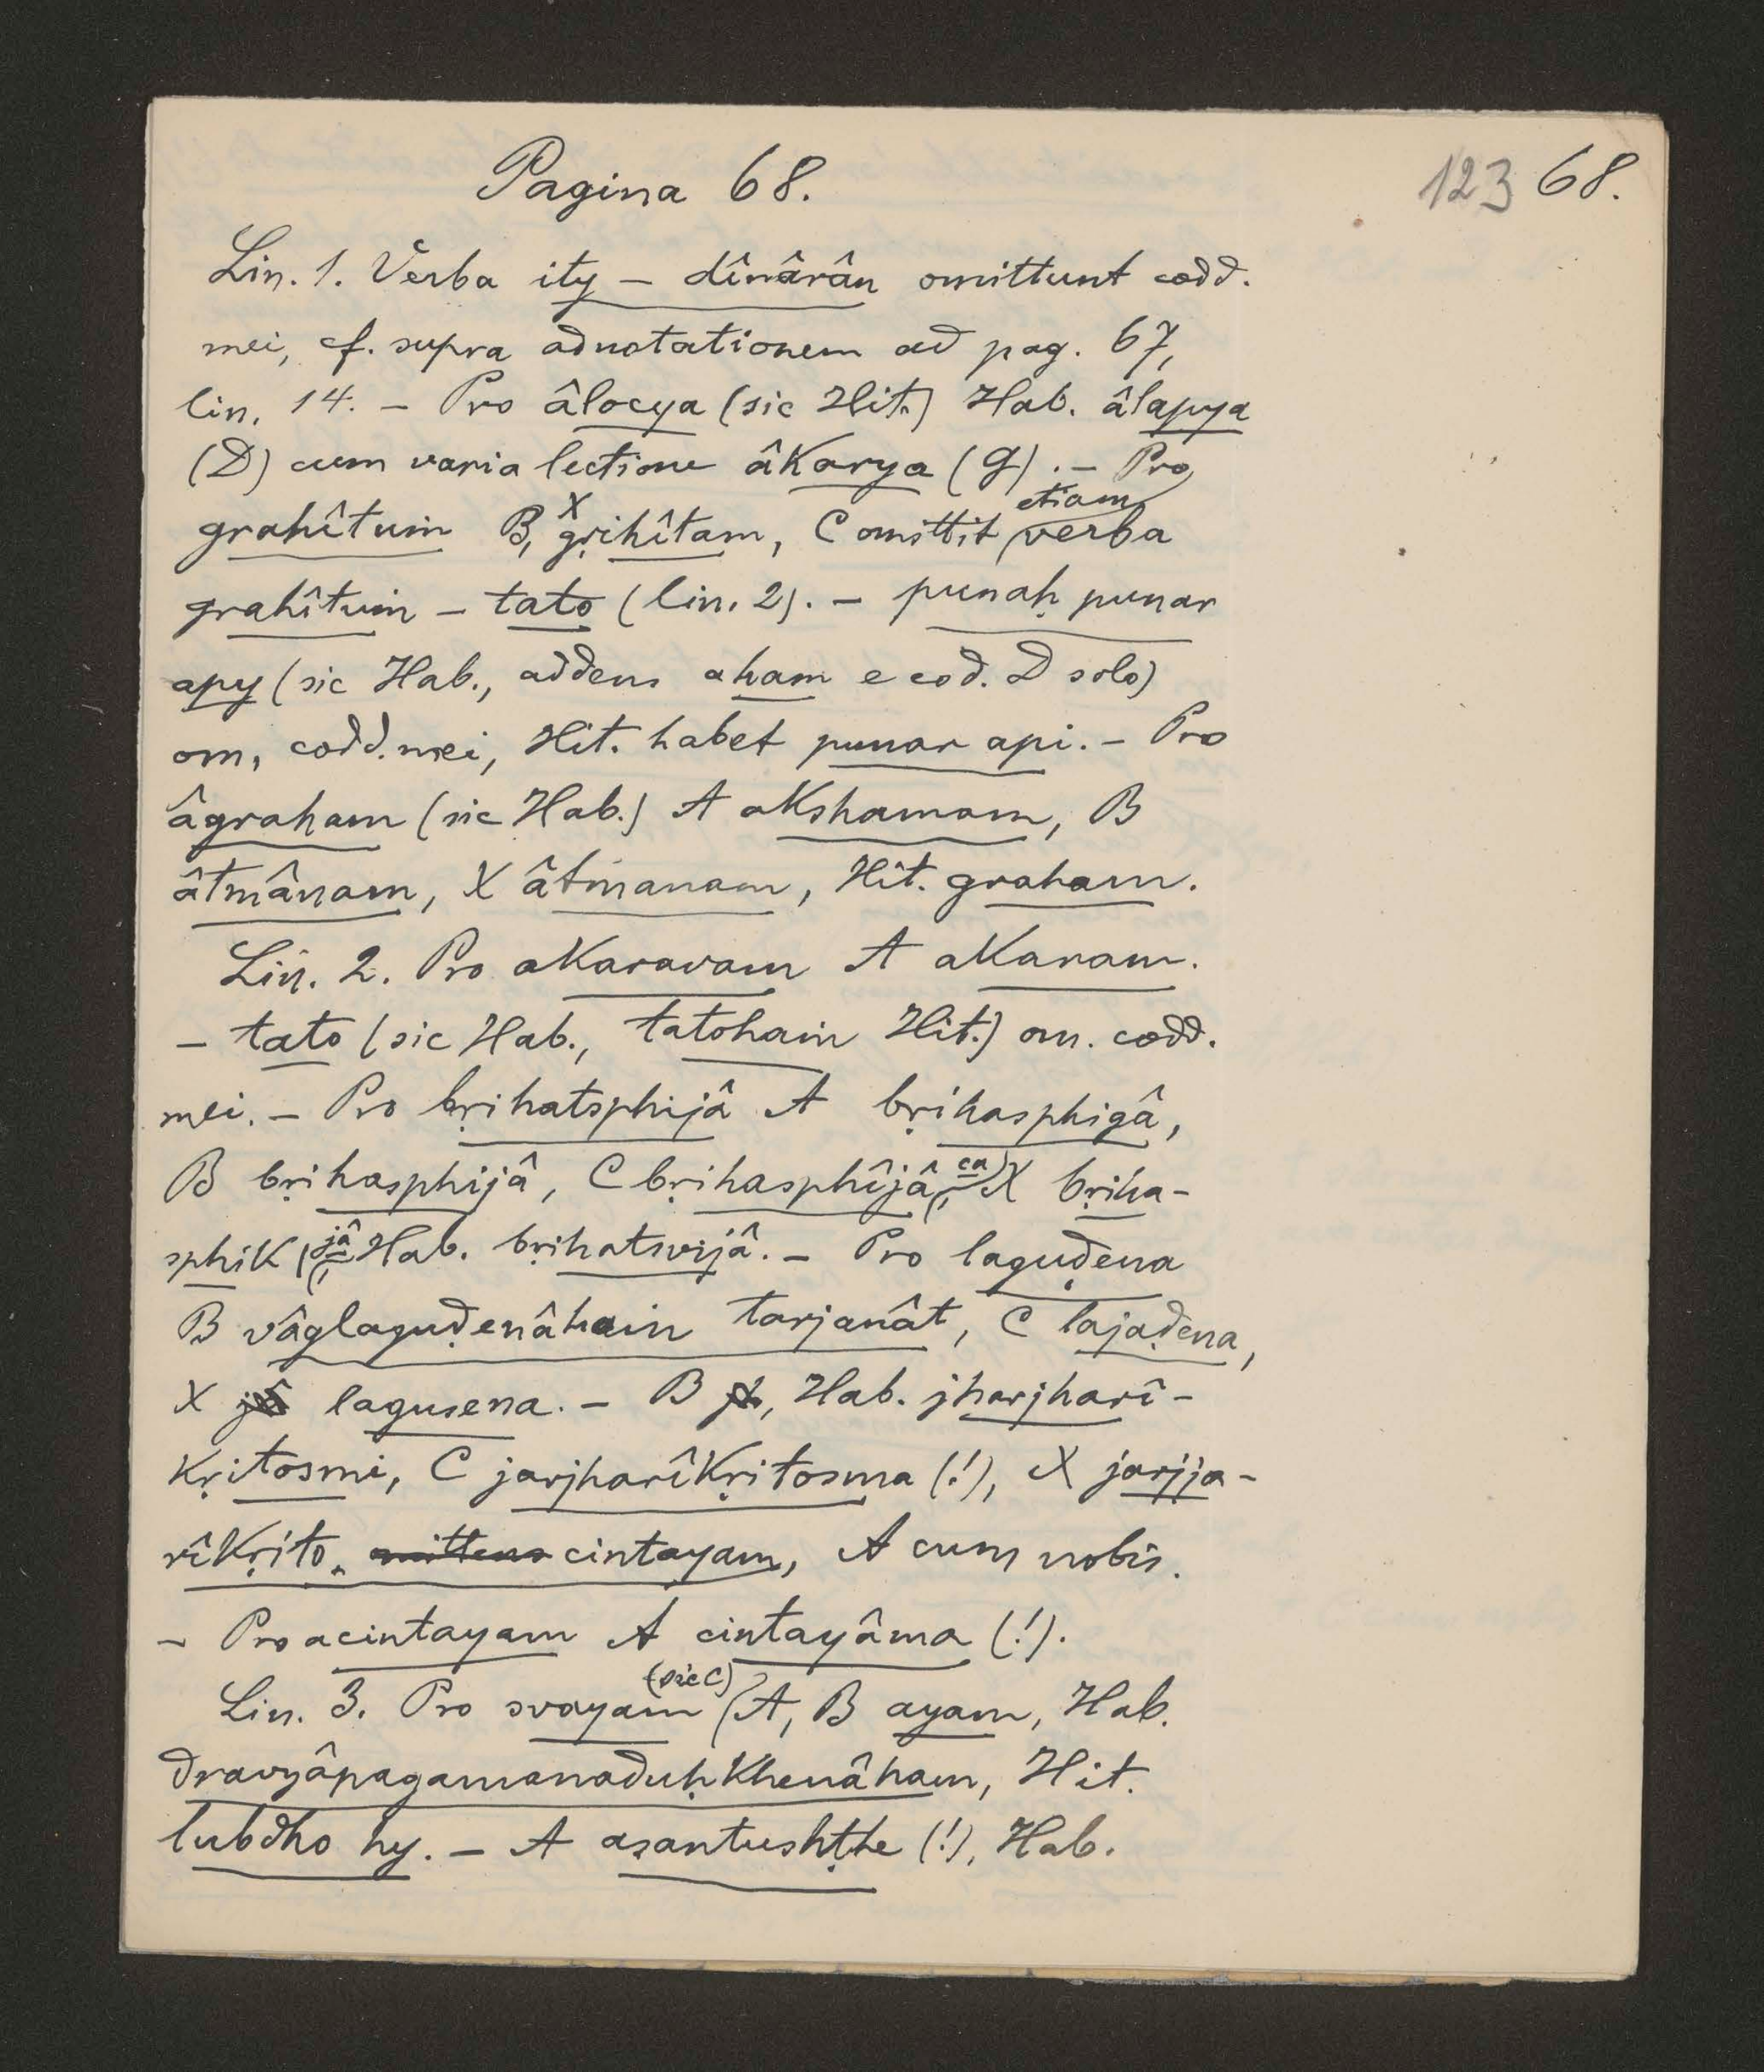 Pagina 68.
123 68.
Lin. 1. Verba ity – dînârân omittunt codd.
mei, cf. supra adnotationem ad pag. 67,
lin. 14. – Pro âlocya (sic Hit.) Hab. âlapya
(D) cum varia lectione âkarya (G). – Pro
grahîtuṁ B, X gṛihîtam, C omittit etiam verba
grahîtuṁ – tato (lin. 2). – punaḥ punar
apy (sic Hab., addens aham e cod. D solo)
om. codd. mei, Hit. habet punar api. – Pro
âgraham (sic Hab.) A akshamam, B
âtmânam, X âtmanam, Hit. graham.
Lin. 2. Pro akaravam A akaram.
– tato (sic Hab., tatohaṁ Hit.) om. codd.
mei. – Pro bṛihatsphijâ A bṛihasphigâ,
B bṛihasphijâ, C bṛihasphîjâ ca, X bṛiha-
sphik jâ, Hab. bṛihatsvijâ. – Pro laguḍena
B vâglaguḍenâhaṁ tarjanât, C lajaḍena,
X lagusena. – B, Hab. jharjharî-
kṛitosmi, C jarjharîkṛitosma (!), X jarjja-
rîkṛito cintayam, A cum nobis.
– Pro acintayam A cintayâma (!).
Lin. 3. Pro svayaṁ (sic C) A, B ayam, Hab.
dravyâpagamanaduḥkhenâham, Hit.
lubdho hy. – A asantushṭhe (!), Hab.